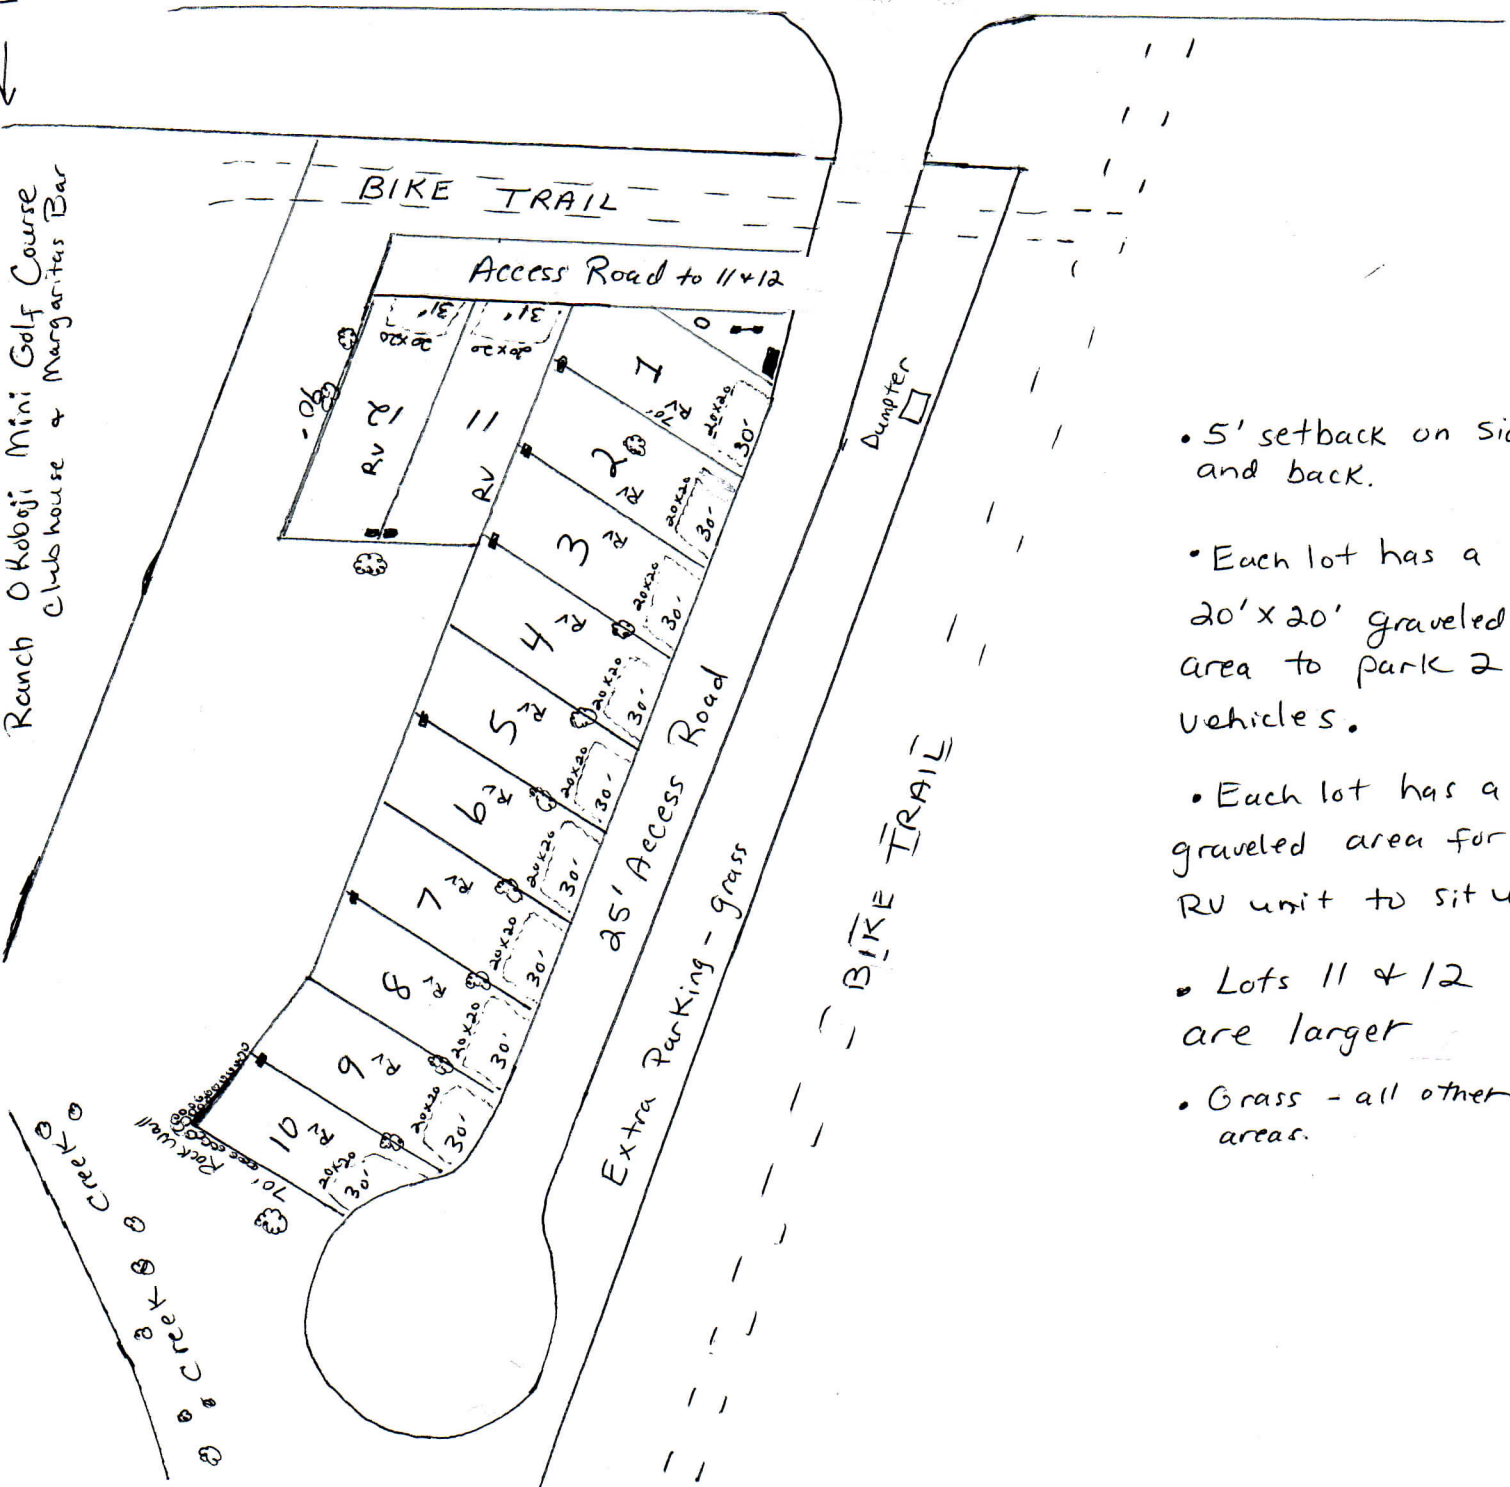 Ranch Okoboji Mini Golf Course
Clubhouse & Margaritas Bar
BIKE TRAIL
Access Road to 11 & 12
31'
20x20
31'
20x20
90'
12
RV
11
RV
0
1
RV
70'
20x20
30'
2
RV
20x20
30'
3
RV
20x20
30'
4
RV
20x20
30'
5
RV
20x20
30'
6
RV
20x20
30'
7
RV
20x20
30'
8
RV
20x20
30'
9
RV
20x20
30'
10
RV
20x20
30'
70'
Rock Wall
Creek
Creek
25' Access Road
Dumpter
Extra Parking - grass
BIKE TRAIL
• 5' setback on Sid
and back.
• Each lot has a
20' x 20' graveled
area to park 2
vehicles.
• Each lot has a
graveled area for
RV unit to sit u
• Lots 11 & 12
are larger
• Grass - all other
areas.